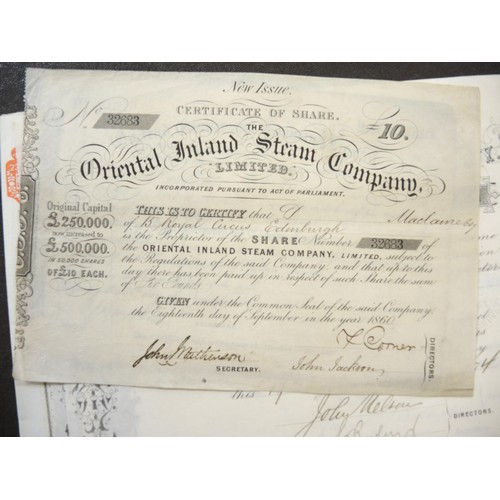 New Issue.
CERTIFICATE OF SHARE.
No 32683
£10.
THE
Oriental Inland Steam Company,
LIMITED.
INCORPORATED PURSUANT TO ACT OF PARLIAMENT.
Original Capital
£250,000.
now increased to
£500,000.
IN 50,000 SHARES
OF £10 EACH.
THIS IS TO CERTIFY that
of 13 Royal Circus, Edinburgh
is the Proprietor of the SHARE Number 32683 of
the ORIENTAL INLAND STEAM COMPANY, LIMITED, subject to
the Regulations of the said Company, and that up to this
day there has been paid up in respect of such Share the sum
of Pounds
GIVEN under the Common Seal of the said Company
the Eighteenth day of September in the year 1860.
Corner
John Mathewson
SECRETARY.
John Jackson
DIRECTORS.
John Nelson
DIRECTORS.